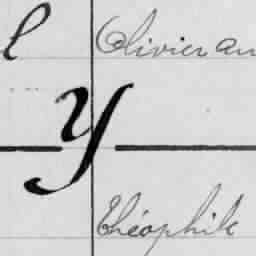 l Olivier au
y
Théophile